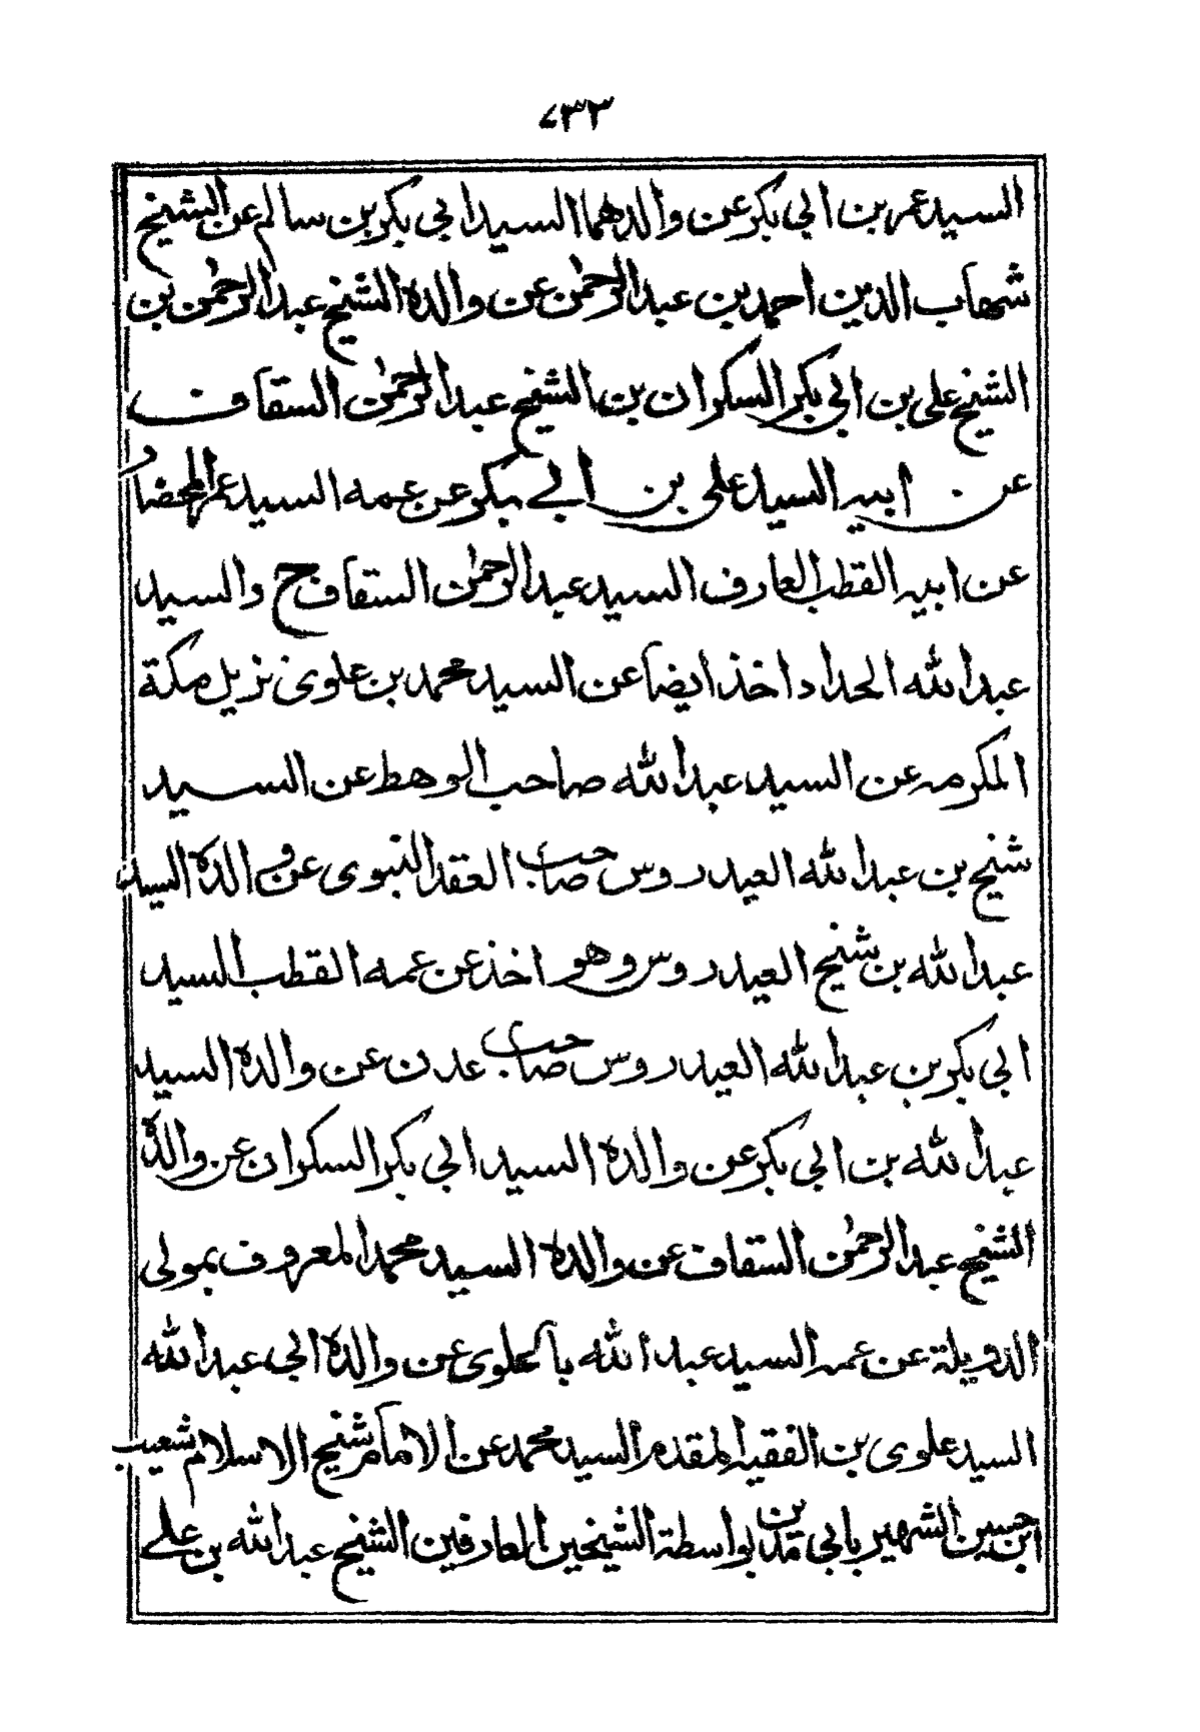 ٧٣٣
السيد عمر بن ابي بكر عن والدهما السيد ابي بكر بن سالم عن الشيخ
شهاب الدين احمد بن عبد الرحمٰن عن والده الشيخ عبد الرحمٰن بن
الشيخ علي بن ابي بكر السكران بن الشيخ عبد الرحمٰن السقاف
عن ابيه السيد علي بن ابي بكر عن عمه السيد عمر المحضار
عن ابيه القطب العارف السيد عبد الرحمٰن السقاف ح والسيد
عبد الله الحداد اخذ ايضا عن السيد محمد بن علوى نزيل مكة
المكرمه عن السيد عبد الله صاحب الوهط عن السيد
شيخ بن عبد الله العيدروس صاحب العقد النبوى عن والده السيد
عبد الله بن شيخ العيدروس وهو اخذ عن عمه القطب السيد
ابي بكر بن عبد الله العيدروس صاحب عدن عن والده السيد
عبد الله بن ابي بكر عن والده السيد ابي بكر السكران عن والده
الشيخ عبد الرحمٰن السقاف عن والده السيد محمد المعروف بمولى
الدويلة عن عمه السيد عبد الله باعلوى عن والده ابى عبد الله
السيد علوى بن الفقيه المقدم السيد محمد عن الامام شيخ الاسلام شعيب
ابن حسين الشهير بابي مدين بواسطة الشيخين العارفين الشيخ عبد الله بن علي